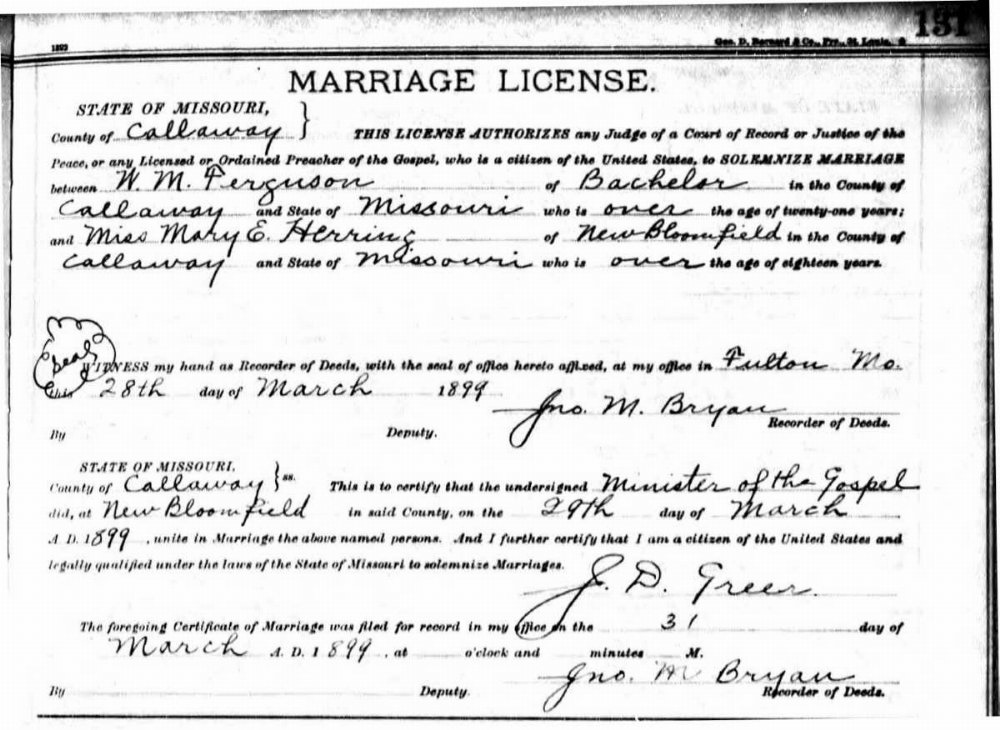 131
1893 Geo. D. Barnard & Co., Prs., St. Louis.
MARRIAGE LICENSE.
STATE OF MISSOURI,
County of Callaway } THIS LICENSE AUTHORIZES any Judge of a Court of Record or Justice of the
Peace, or any Licensed or Ordained Preacher of the Gospel, who is a citizen of the United States, to SOLEMNIZE MARRIAGE
between W. M. Ferguson of Bachelor in the County of
Callaway and State of Missouri who is over the age of twenty-one years;
and Miss Mary E. Herring of New Bloomfield in the County of
Callaway and State of Missouri who is over the age of eighteen years.
Seal
WITNESS my hand as Recorder of Deeds, with the seal of office hereto affixed, at my office in Fulton Mo.
this 28th day of March 1899
Jno. M. Bryan
Recorder of Deeds.
By Deputy.
STATE OF MISSOURI,
County of Callaway } ss. This is to certify that the undersigned Minister of the Gospel
did, at New Bloomfield in said County, on the 29th day of March
A. D. 1899, unite in Marriage the above named persons. And I further certify that I am a citizen of the United States and
legally qualified under the laws of the State of Missouri to solemnize Marriages.
J. D. Greer.
The foregoing Certificate of Marriage was filed for record in my office on the 31 day of
March A. D. 1899, at o'clock and minutes M.
Jno. M Bryan
By Deputy. Recorder of Deeds.